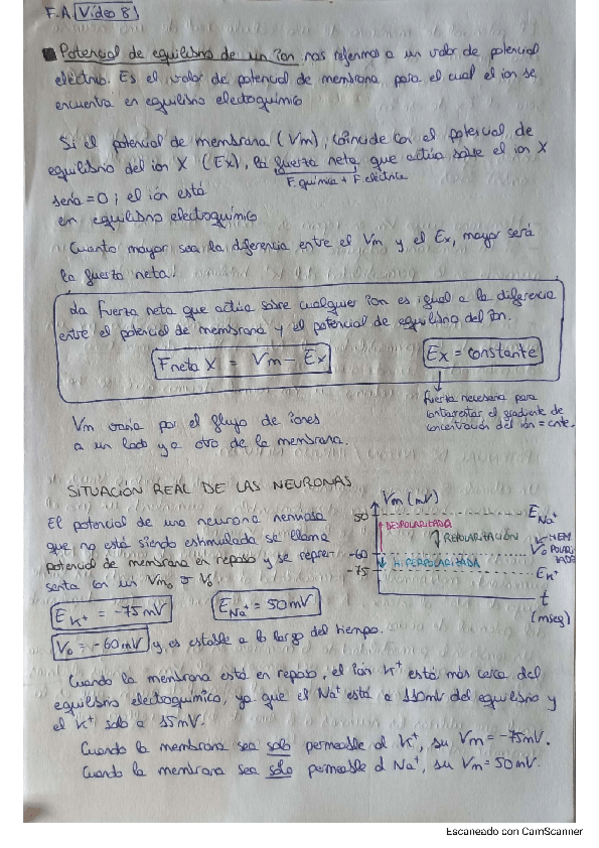 F.A. Vídeo 8
Potencial de equilibrio de un ion nos referimos a un valor de potencial
eléctrico. Es el valor de potencial de membrana para el cual el ion se
encuentra en equilibrio electoquímico
Si el potencial de membrana (Vm), coincide con el potencial de
equilibrio del ion X (Ex), la fuerza neta que actúa sobre el ion X
F. química + F eléctrica
sería = 0; el ión está
en equilibrio electoquímico
Cuanto mayor sea la diferencia entre el Vm y el Ex, mayor será
la fuerza neta.
La fuerza neta que actúa sobre cualquier ion es igual a la diferencia
entre el potencial de membrana y el potencial de equilibrio del ion.
Fneta X = Vm - Ex
Ex = constante
fuerza necesaria para
contrarrestar el gradiente de
concentración del ión = cnte.
Vm varía por el flujo de iones
a un lado y a otro de la membrana.
SITUACIÓN REAL DE LAS NEURONAS
El potencial de una neurona nerviosa
que no está siendo estimulada se llama
potencial de membrana en reposo y se repre-
senta con un Vm₀ o V₀.
Vm (mV)
50
E Na⁺
DESPOLARIZADA
REPOLARIZACIÓN
-60
V₀
MEM.
POLARI-
ZADA
HIPERPOLARIZADA
-75
E K⁺
t
(mseg)
E K⁺ = -75mV
E Na⁺ = 50mV
V₀ = -60mV y es estable a lo largo del tiempo.
Cuando la membrana está en reposo, el ión K⁺ está más cerca del
equilibrio electoquímico, ya que el Na⁺ está a 110mV del equilibrio y
el K⁺ solo a 15mV.
Cuando la membrana sea solo permeable al K⁺, su Vm = -75mV.
Cuando la membrana sea sólo permeable al Na⁺, su Vm = 50mV.
Escaneado con CamScanner